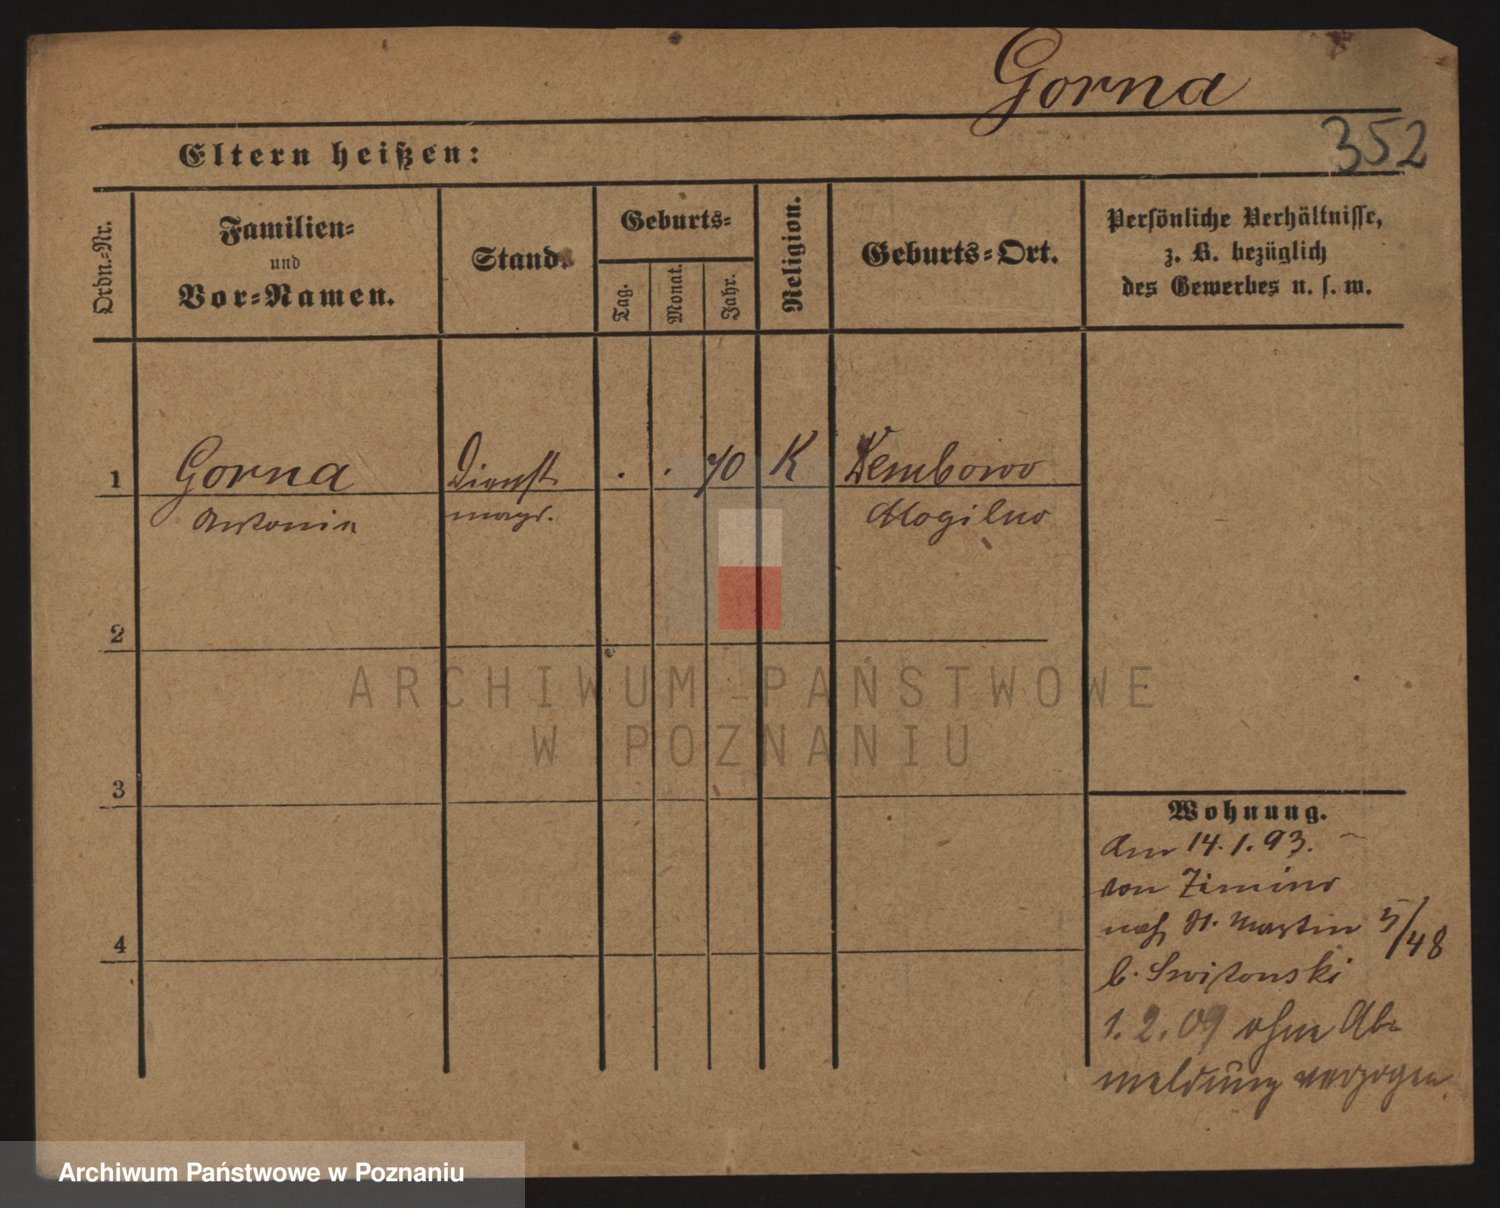 Gorna
352
Eltern heißen:
Ordn.-Nr.
Familien-
und
Vor-Namen.
Stand.
Geburts-
Tag.
Monat.
Jahr.
Religion.
Geburts-Ort.
Persönliche Verhältnisse,
z. B. bezüglich
des Gewerbes u. s. w.
1 Gorna Dienst . . 70 K Dembowo
Antonie magd. Mogilno
2
3
4
Wohnung.
Am 14.1.93.
von Zimino
nach St. Martin 5/48
b. Switonski
1.2.09 ohne Ab-
meldung verzogen.
ARCHIWUM PAŃSTWOWE
W POZNANIU
Archiwum Państwowe w Poznaniu